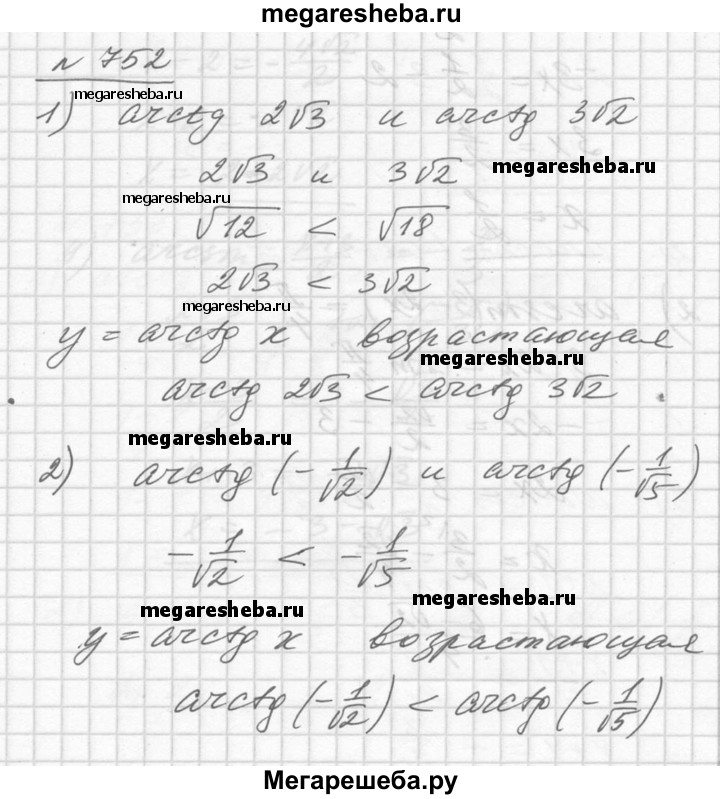 megaresheba.ru
№ 752
megaresheba.ru
1) arctg 2√3 и arctg 3√2
2√3 и 3√2
megaresheba.ru
megaresheba.ru
√12 < √18
2√3 < 3√2
megaresheba.ru
y = arctg x возрастающая
megaresheba.ru
arctg 2√3 < arctg 3√2.
megaresheba.ru
2) arctg (-1/√2) и arctg (-1/√5)
-1/√2 < -1/√5
megaresheba.ru
megaresheba.ru
y = arctg x возрастающая
arctg (-1/√2) < arctg (-1/√5)
Мегарешеба.ру